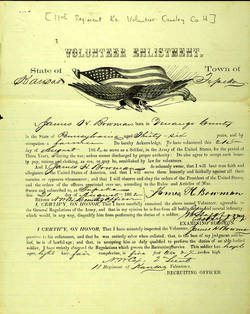 [11th Regiment Ks. Volunteer Cavalry Co. H]
VOLUNTEER ENLISTMENT.
State of Town of
Kansas Topeka
I, James H. Bowman born in Venango County
in the State of Pennsylvania aged Thirty six years, and by
occupation a farmer Do hereby Acknowledge to have volunteered this
day of August 186 , to serve as a Soldier in the Army of the United States of America, for the period of
Three Years, unless sooner discharged by proper authority: Do also agree to accept such bounty,
pay, rations, and clothing, as are, or may be, established by law for volunteers.
And I, James H. Bowman do solemnly swear, that I will bear true faith and
allegiance to the United States of America, and that I will serve them honestly and faithfully against all their
enemies or opposers whomsoever; and that I will observe and obey the orders of the President of the United States,
and the orders of the officers appointed over me, according to the Rules and Articles of War.
Sworn and subscribed to, at Topeka
this day of August James H. Bowman
Before
I CERTIFY, ON HONOR, That I have carefully examined the above named Volunteer, agreeably to the
General Regulations of the Army, and that in my opinion he is free from all bodily defects and mental infirmity,
which would, in any way, disqualify him from performing the duties of a soldier.
EXAMINING SURGEON.
I CERTIFY, ON HONOR, That I have minutely inspected the Volunteer, James H. Bowman
previous to his enlistment, and that he was entirely sober when enlisted; that to the best of my judgment and
belief, he is of lawful age; and that, in accepting him as duly qualified to perform the duties of an able-bodied
soldier, I have strictly observed the Regulations which govern the Recruiting Service. This soldier has hazel
eyes, hair, fair complexion, is feet inches high.
Lieut
11 Regiment of Kansas Volunteers,
RECRUITING OFFICER.